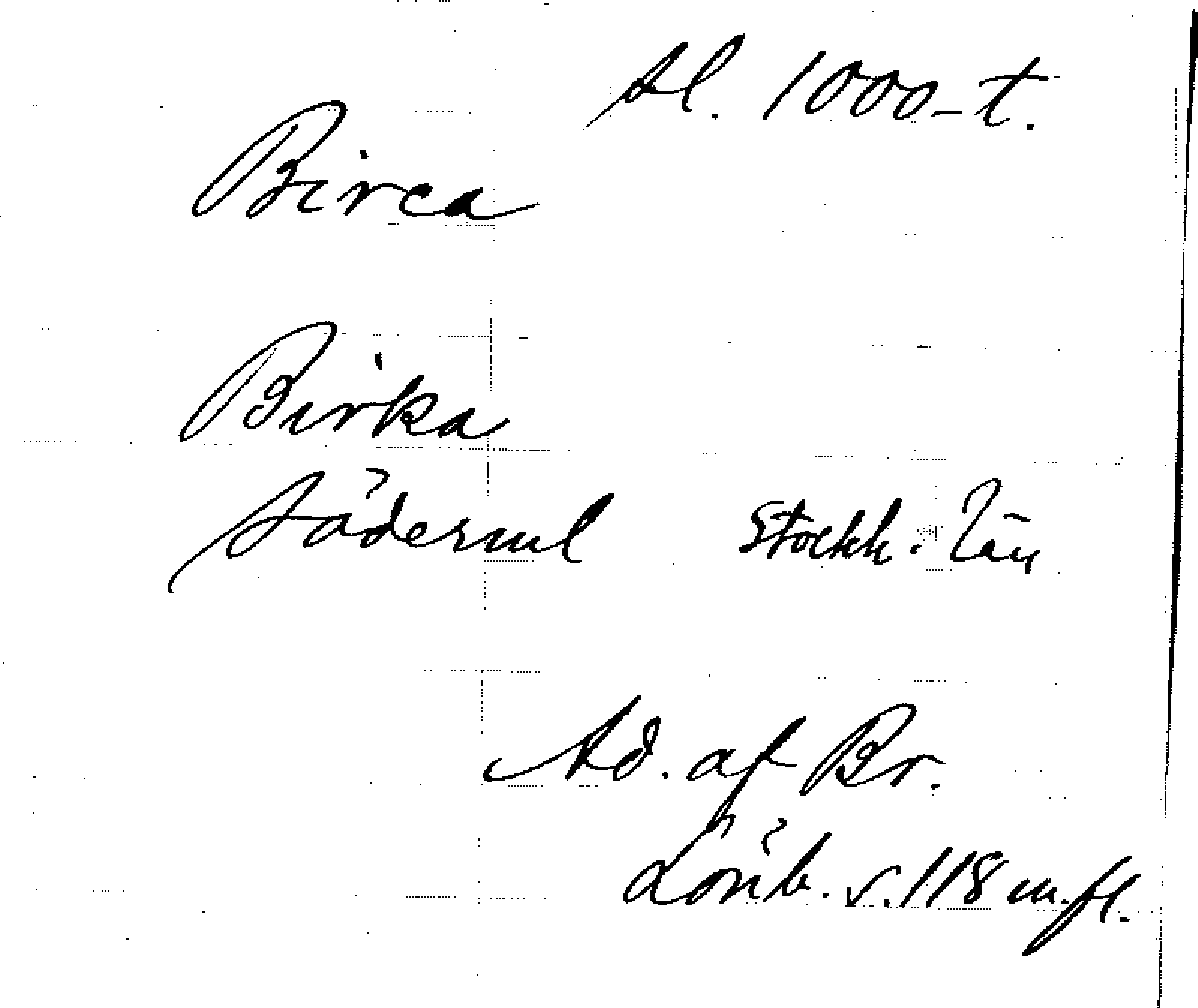 sl. 1000-t.
Birca
Birka
Söderml Stockh. län
Ad. af Br.
Lönb. s. 118 m. fl.